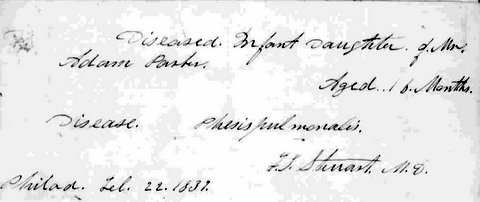 Diseased. Infant Daughter of Mr.
Adam
Aged. 16 Months.
Disease. Phesispulmonalis.
Stuart. M.D.
Philad. Feb. 22. 1837